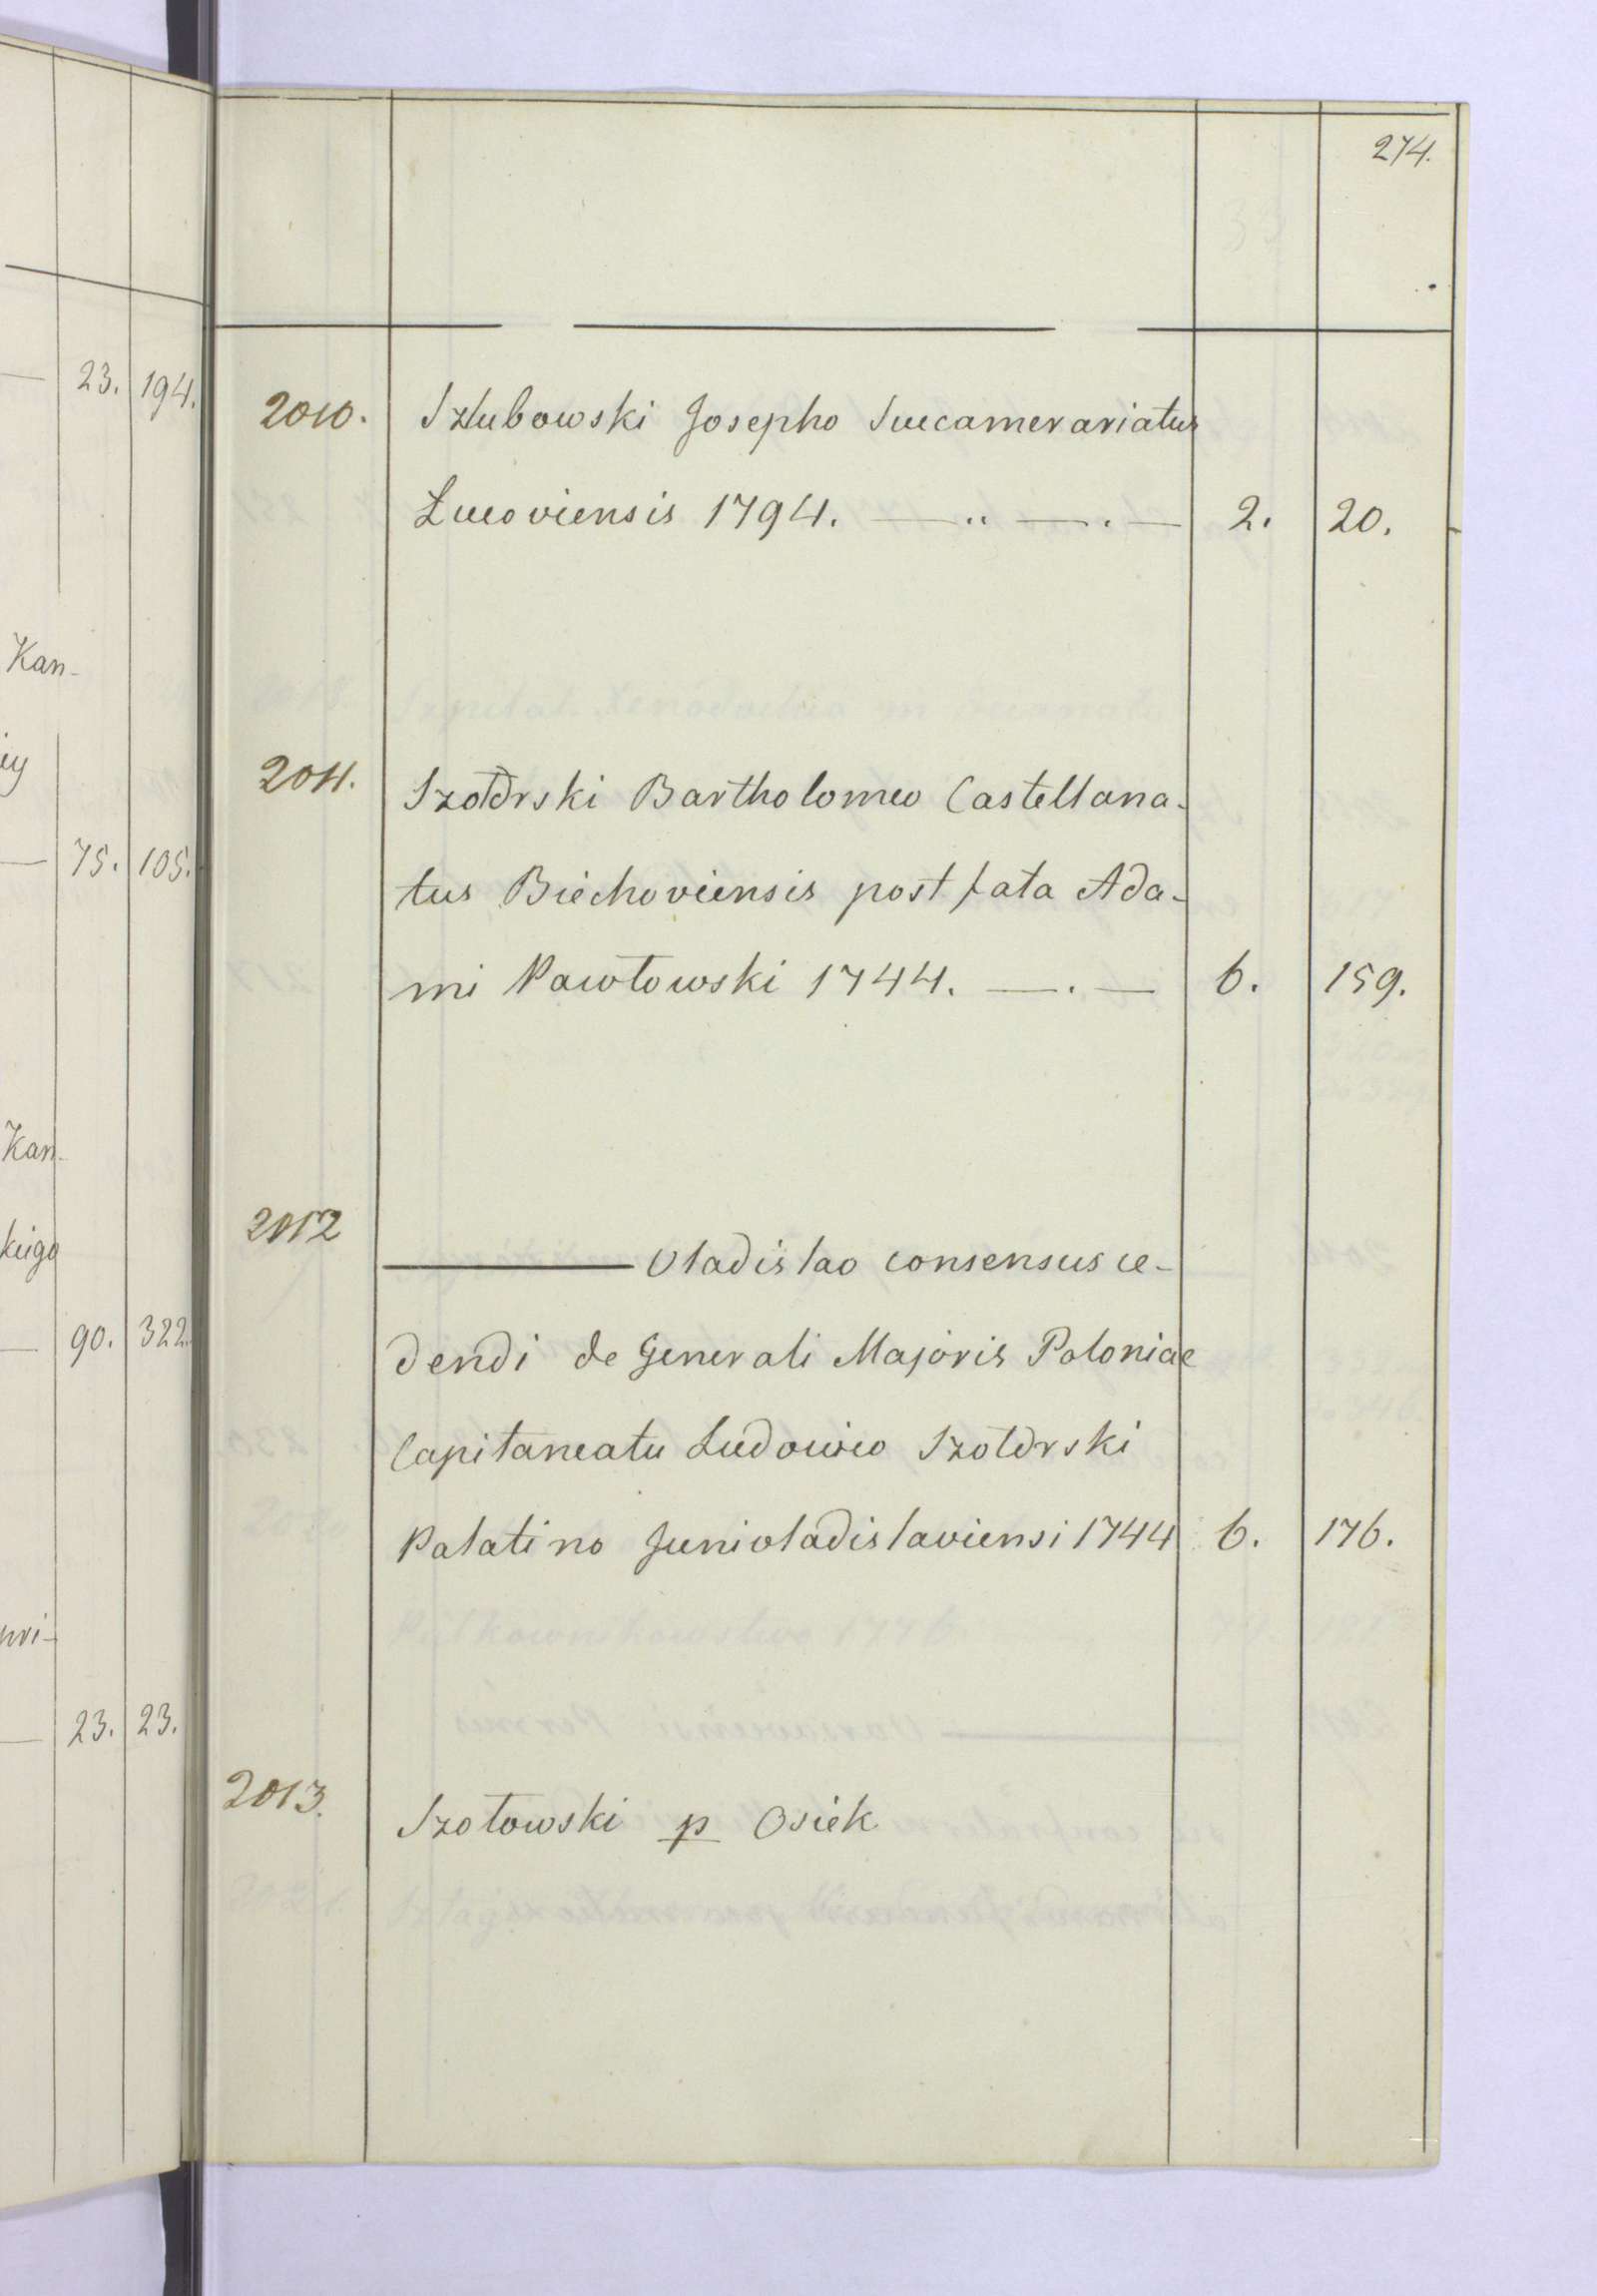 274.
23. 194.
Kan-
75. 105.
Kan-
kiego
90. 322.
23. 23.
2010. Szłubowski Josepho Succamerariatus
Lucoviensis 1794. 2. 20.
2011. Szołdrski Bartholomeo Castellana-
tus Biechoviensis post fata Ada-
mi Pawłowski 1744. 6. 159.
2012 ——— Vladislao consensus ce-
dendi de Generali Majoris Poloniae
Capitaneatu Ludovico Szołdrski
Palatino Junivladislaviensi 1744 6. 176.
2013. Szołowski p Osiek